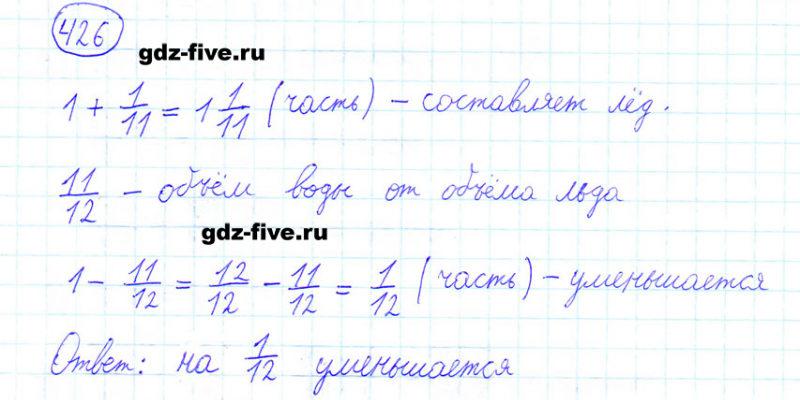 426
gdz-five.ru
1 + 1/11 = 1 1/11 (часть) – составляет лёд.
11/12 – объём воды от объёма льда
gdz-five.ru
1 – 11/12 = 12/12 – 11/12 = 1/12 (часть) – уменьшается
Ответ: на 1/12 уменьшается